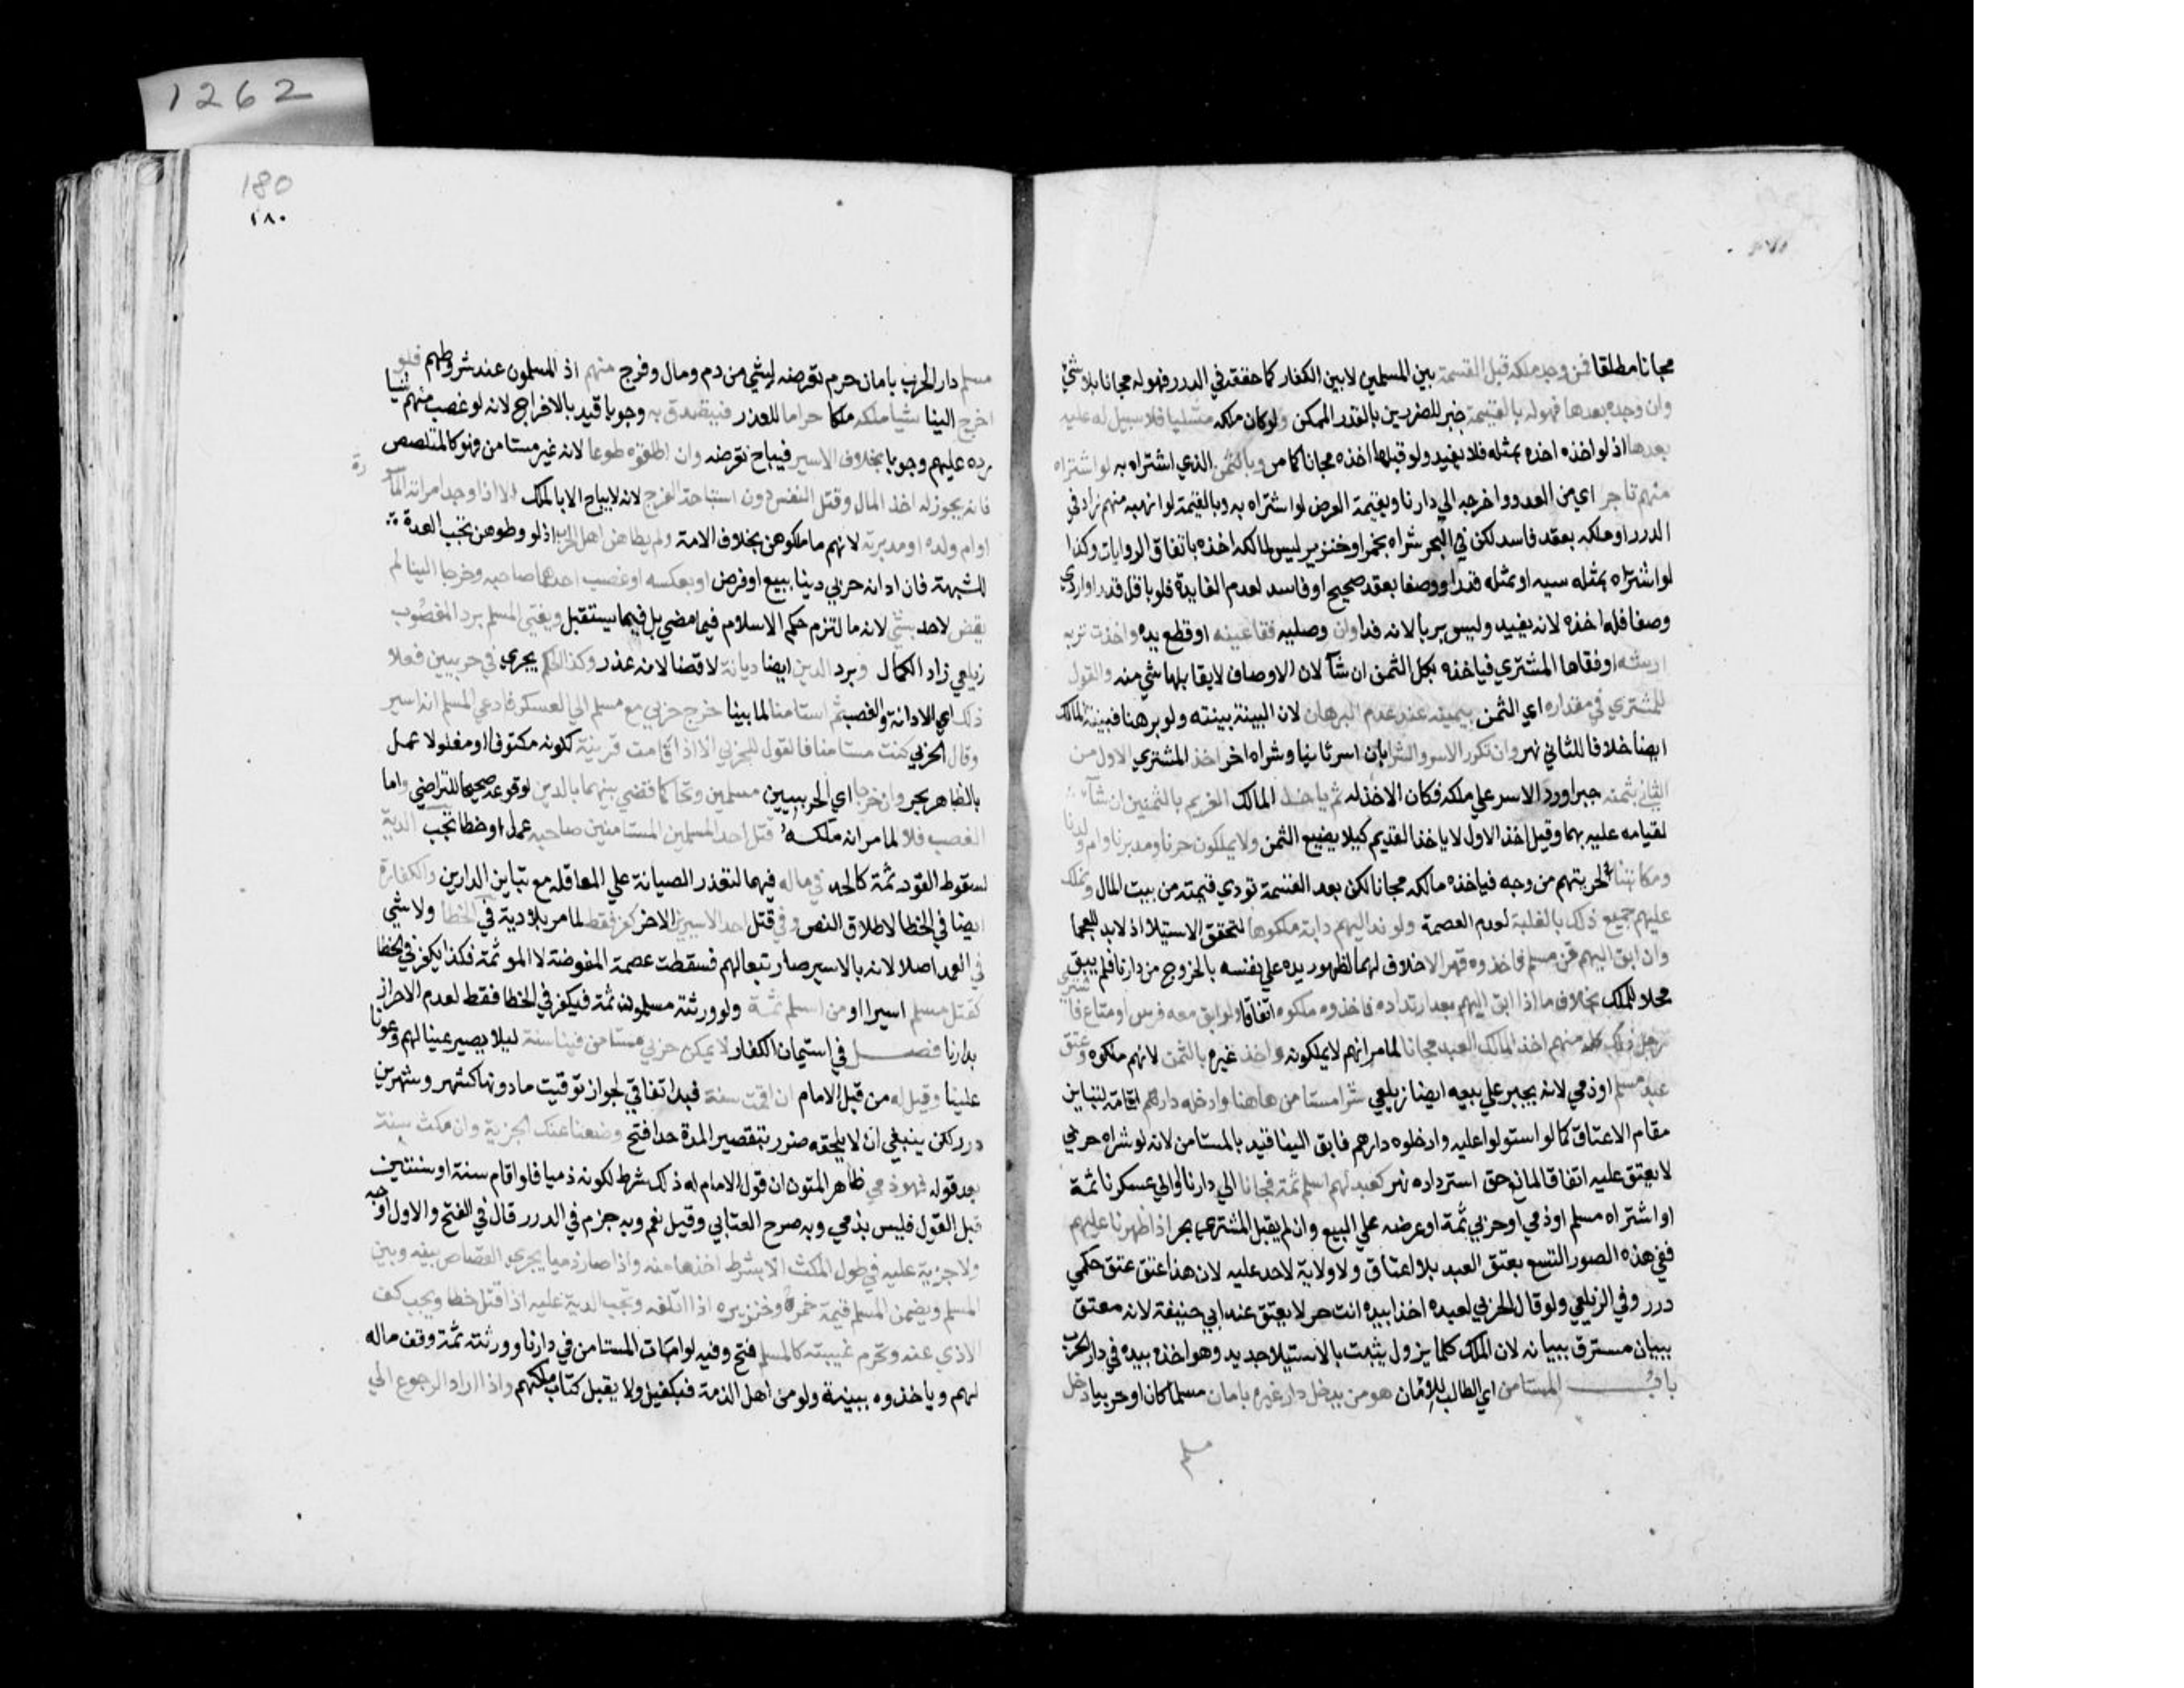 مجانا مطلقا فمن وجد ملكه قبل القسمة بين المسلمين لا بين الكفار كما حققه في الدرر فهو له مجانا بلا شي
وان وجده بعدها فهو له بالقيمة جبر للضررين بالقدر الممكن ولو كان ملكه مثليا فلا سبيل له عليه
بعدها اذ لو اخذه اخذه بمثله فلا يفيد ولو قبلها اخذه مجانا كما مر وبالثمن الذي اشتراه به لو اشتراه
منهم تاجر اي من العدو واخرجه الي دارنا وبقيمة العرض لو اشتراه به وبالقيمة لو اتهبه منهم زاد في
الدرر او ملكه بعقد فاسد لكن في البحر شراه بخمر او خنزير ليس لمالكه اخذه باتفاق الروايات وكذا
لو اشتراه بمثله سيه او بمثله قدرا ووصفا بعقد صحيح او فاسد لعدم الفايدة فلو باقل قدرا او اردي
وصفا فله اخذه لانه يفيد وليس بربا لانه فدا وان وصليه فقا عينه او قطع يده واخذ مشتريه
ارشه او فقاها المشتري فياخذه بكل الثمن ان شآ لان الاوصاف لا يقابلها شي منه والقول
للمشتري في مقداره اي الثمن بيمينه عند عدم البرهان لان البينة بينته ولو برهنا فبينة المالك
ايضا خلافا للثاني نهر وان تكرر الاسر والشرا بان اسر ثانيا وشراه اخر اخذ المشتري الاول من
الثاني بثمنه جبرا ورد الاسر علي ملكه فكان الاخذ له ثم ياخذ المالك القديم بالثمنين ان شآ
لقيامه عليه بهما وقيل اخذ الاول لا ياخذ القديم كيلا يضيع الثمن ولا يملكون حرنا ومدبرنا وام ولدنا
ومكاتبنا لحريتهم من وجه فياخذه مالكه مجانا لكن بعد القسمة تودي قيمته من بيت المال ونملك
عليهم جميع ذلك بالغلبة لعدم العصمة ولو ند اليهم دابة ملكوها لتحقق الاستيلا اذ لا يد للعجما
وان ابق اليهم قن مسلم فاخذوه قهرا لا خلاف لهما لظهور يده علي نفسه بالخروج من دارنا فلم يبق
محلا للملك بخلاف ما اذا ابق اليهم بعد ارتداده فاخذوه ملكوه اتفاقا ولو ابق معه فرس او متاع فاشتري
رجل ذلك كله منهم اخذ المالك العبد مجانا لما مر انهم لا يملكونه واخذ غيره بالثمن لانهم ملكوه وعتق
عبد مسلم او ذمي لانه يجبر علي بيعه ايضا زيلعي شرا مستامن هاهنا وادخله دارهم اقامة لتباين
مقام الاعتاق كما لو استولوا عليه وادخلوه دارهم فابق الينا قيد بالمستامن لانه لو شراه حربي
لا يعتق عليه اتفاقا لمانع حق استرداده نهر كعبد لهم اسلم ثمة فجانا الي دارنا او الي عسكرنا ثمة
او اشتراه مسلم او ذمي او حربي ثمة او عرضه علي البيع وان لم يقبل المشتري بحر اذ اظهرنا عليهم
ففي هذه الصور التسع يعتق العبد بلا اعتاق ولا ولاية لاحد عليه لان هذا عتق حكمي
درر وفي الزيلعي ولو قال الحربي لعبده اخذا بيده انت حر لا يعتق عند ابي حنيفة لانه معتق
ببيان مسترق ببيانه لان الملك كما يزول يثبت بالاستيلا جديد وهو اخذه بيده في دار الحرب
باب المستامن اي الطالب للامان هو من يدخل دار غيره بامان مسلما كان او حربيا دخل
مسلم
180
١٨٠
مسلم دار الحرب بامان حرم تعرضه لشي من دم ومال وفرج منهم اذ المسلمون عند شروطهم فلو
اخرج الينا شيا ملكه ملكا حراما للغدر فيتصدق به وجوبا قيد بالاخراج لانه لو غصب منهم شيا
رده عليهم وجوبا بخلاف الاسير فيباح تعرضه وان اطلقوه طوعا لانه غير مستامن فهو كالمتلصص
فانه يجوز له اخذ المال وقتل النفس دون استباحة الفرج لانه لا يباح الا بالملك الا اذا وجد امراته الماسورة
او ام ولده او مدبرته لانهم ما ملكوهن بخلاف الامة ولم يطاهن اهل الحرب اذ لو وطوهن تجب العدة
للشبهة فان ادانه حربي دينا ببيع او قرض او بعكسه او غصب احدهما صاحبه وخرجا الينا لم
يقض لاحد بشي لانه ما التزم حكم الاسلام فيما مضي بل فيما يستقبل ويفتي المسلم برد المغصوب
زيلعي زاد الكمال وبرد الدين ايضا ديانة لا قضا لانه غدر وكذا الحكم يجري في حربيين فعلا
ذلك اي الادانة والغصب ثم استامنا لما بينا خرج حربي مع مسلم الي العسكر فادعي المسلم انه اسير
وقال الحربي كنت مستامنا فالقول للحربي الا اذا قامت قرينة ككونه مكتوفا او مغلولا عمل
بالظاهر بحر وان خرجا اي الحربيين مسلمين وتحاكما قضي بينهما بالدين لوقوعه صحيحا للتراضي واما
الغصب فلا لما مر انه ملكه قتل احد المسلمين المستامنين صاحبه عمدا او خطا تجب الدية
لسقوط القود ثمة كالحد في ماله فيهما لتعذر الصيانة علي العاقلة مع تباين الدارين والكفارة
ايضا في الخطا لاطلاق النص وفي قتل احد الاسيرين الاخر كفر فقط لما مر بلا دية في الخطا ولا شي
في العمد اصلا لانه بالاسير صار تبعا لهم فسقطت عصمة المفوضة لا الموثمة فكذا يكفر في الخطا
كقتل مسلم اسيرا او من اسلم ثمة ولو ورثته مسلمون ثمة فيكفر في الخطا فقط لعدم الاحراز
بدارنا فصل في استيمان الكفار لا يمكن حربي مستامن فينا سنة ليلا يصير عينا لهم وعونا
علينا وقيل له من قبل الامام ان اقمت سنة قيد اتفاقي لجواز توقيت ما دونها كشهر وشهرين
درر لكن ينبغي ان لا يلحقه ضرر بتقصير المدة جدا فتح وضعنا عنك الجزية وان مكث سنة
بعد قوله فهو ذمي ظاهر المتون ان قول الامام له ذلك شرط لكونه ذميا فلو اقام سنة او سنتين
قبل القول فليس بذمي وبه صرح العتابي وقيل نعم وبه جزم في الدرر قال في الفتح والاول اوجه
ولا جزية عليه في حول المكث الا بشرط اخذها منه واذا صار ذميا يجري القصاص بينه وبين
المسلم ويضمن المسلم قيمة خمره وخنزيره اذا اتلفه وتجب الدية عليه اذا قتل خطا ويجب كف
الاذي عنه وتحرم غيبته كالمسلم فتح وفيه لو امات المستامن في دارنا وورثته ثمة وقف ماله
لهم وياخذوه ببينة ولو من اهل الذمة فبكفيل ولا يقبل كتاب ملكهم واذا اراد الرجوع الي
1262